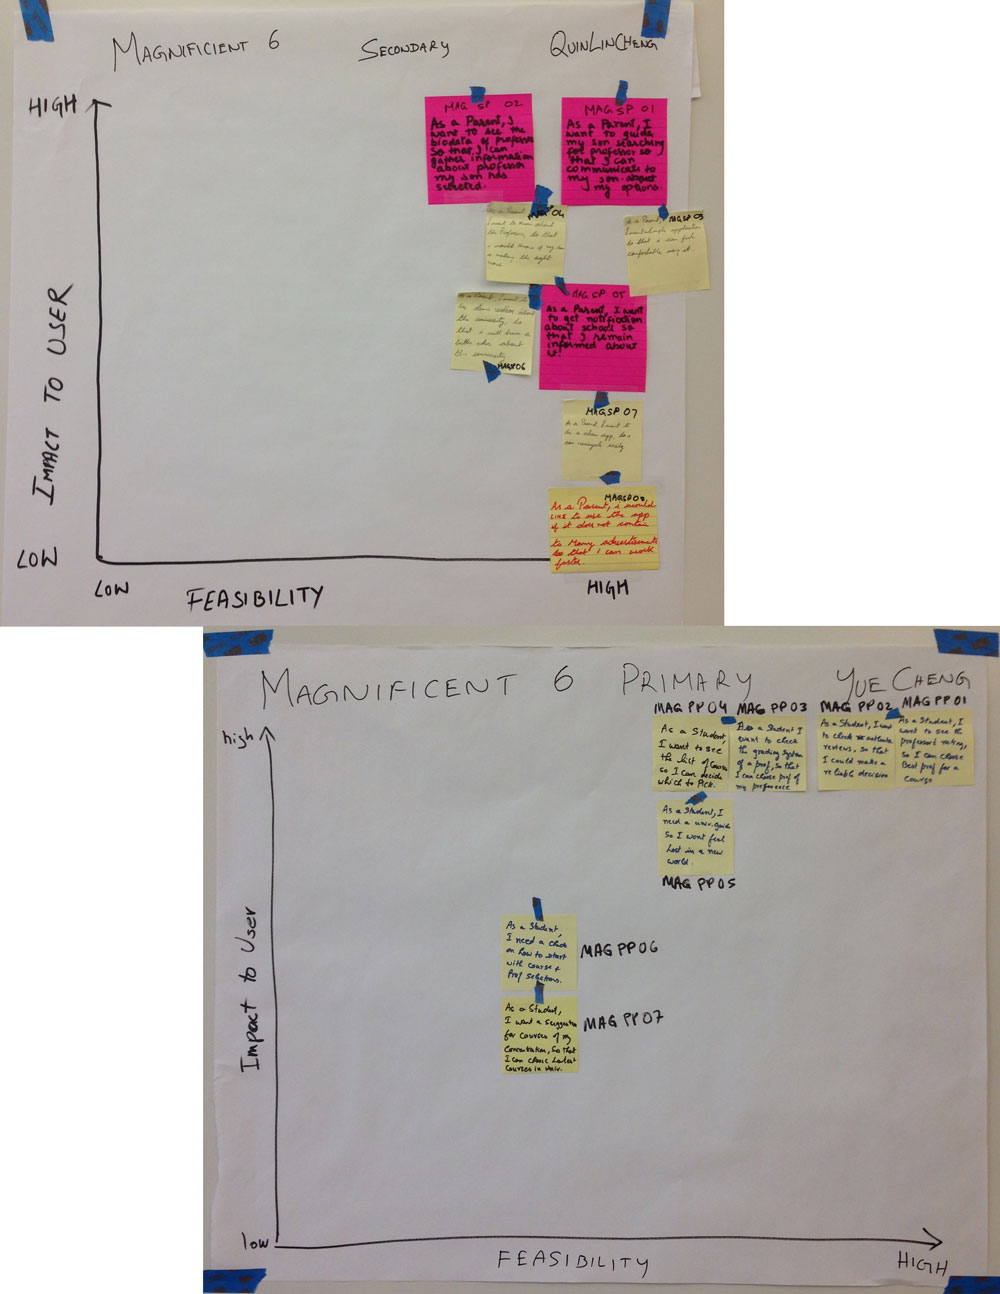 MAGNIFICIENT 6 SECONDARY QUINLINCHENG
HIGH
MAG SP 02
As a Parent, I
want to see the
biodata of professor
so that I can
gather information
about professor
my son has
selected.
MAG SP 01
As a Parent, I
want to guide
my son searching
for professor so
that I can
communicate to
my son about
my options.
MAGSP04
As a Parent
I want to know about
the Professor, so that
I would know if my son
is making the right
move
MAGSP03
As a Parent,
I want simple application
so that I can feel
comfortable using it.
MAG SP 05
As a Parent, I want
to get notification
about school so
that I remain
informed about
it!
As a Parent, I want to
the university, so
that I will have a
better idea about
the university
MAGSP06
MAGSP 07
As a Parent, I want to
app, so I
can navigate easily
MAGSP08
As a Parent, I would
LIKE to use the app
if it does not contain
to Many advertisements
So that I can work
faster.
IMPACT TO USER
LOW
LOW
FEASIBILITY
HIGH
MAGNIFICENT 6 PRIMARY YUE CHENG
MAG PP04 MAG PP03 MAG PP02 MAG PP01
high
As a Student,
I want to see
the list of course
so I can decide
which to Pick.
As a Student I
want to check
the grading system
of a prof, so that
I can choose prof of
my preference
As a Student, I want
to check authentic
reviews, so that
I could make a
reliable decision
As a Student, I
want to see the
professor's rating,
so I can choose
Best prof for a
course
As a Student, I
need a univ. guide
So I wont feel
Lost in a new
world.
MAG PP05
As a Student,
I need a
on how to start
with course &
Prof selections.
MAG PP06
As a Student,
I want a suggestion
for courses of my
Concentration, So that
I can
Courses in univ.
MAG PP07
Impact to User
low
FEASIBILITY
HIGH